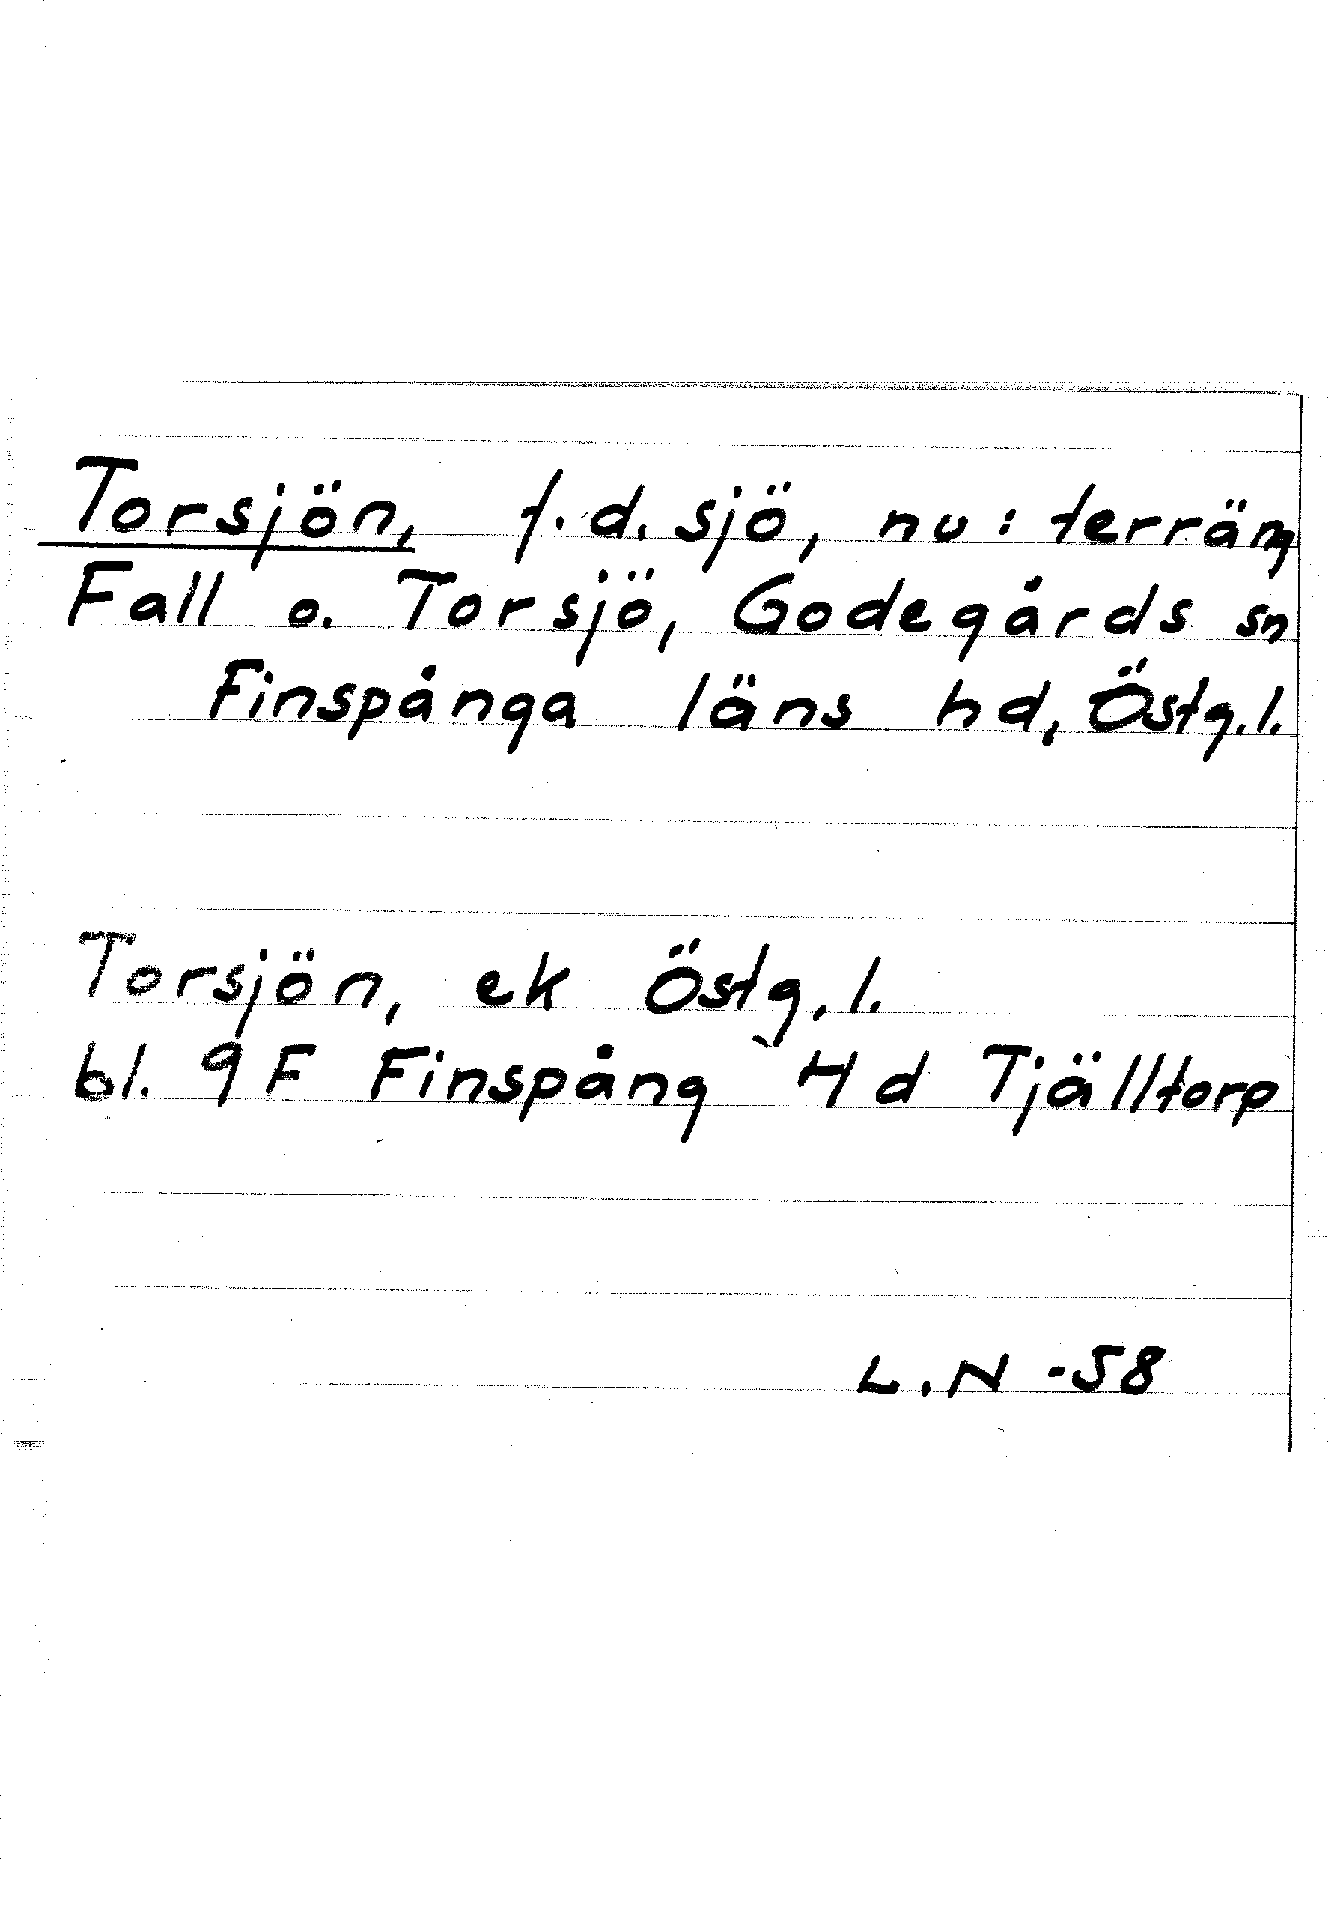 Torsjön, f.d. sjö, nu: terräng
Fall o. Torsjö, Godegårds sn
Finspånga läns hd, Östg.l.
Torsjön, ek Östg.l.
bl. 9F Finspång 4d Tjälltorp
L.N -58